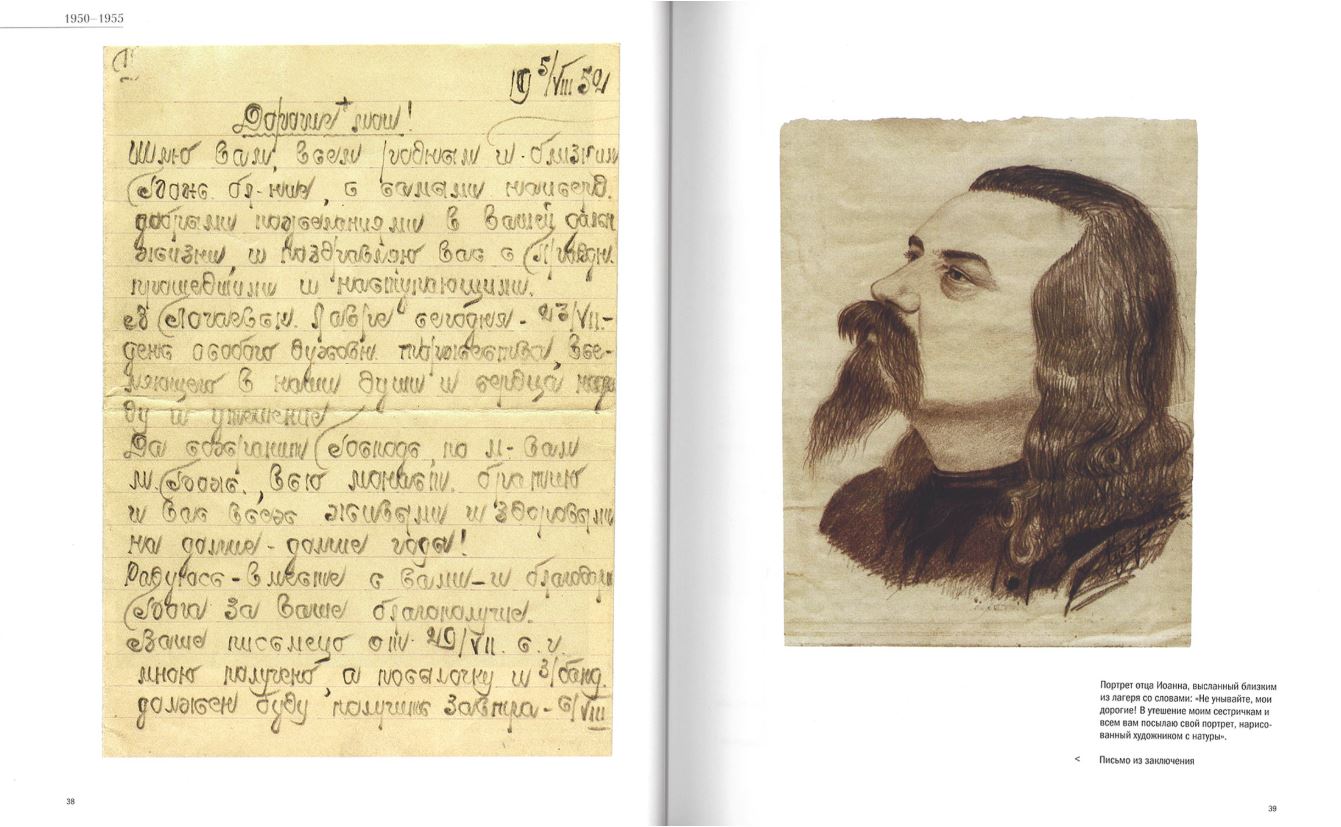 1950–1955
19 5/VIII 52
Дорогие мои!
Шлю вам, всем родным и близким
Божье бл-ние, с самыми наисерд.
добрыми пожеланиями в вашей
жизни, и поздравляю вас с Праздн.
прошедшими и наступающими.
В Почаевск. Лавре сегодня - 23/VII.-
день особого духовн. торжества, все-
ляющего в наши души и сердца
и утешение
Да сохранит Господь, по м-вам
М. Божьей, всю монаст. братию
и вас всех живыми и здоровыми
на долгие - долгие годы!
Радуюсь - вместе с вами - и благодарю
Бога за ваше благополучие.
Ваше письмецо от 29/VII. с. г.
мною получено, а посылочку и з/банд.
должен буду получить завтра - 6/VIII
38
Портрет отца Иоанна, высланный близким
из лагеря со словами: «Не унывайте, мои
дорогие! В утешение моим сестричкам и
всем вам посылаю свой портрет, нарисо-
ванный художником с натуры».
< Письмо из заключения
39